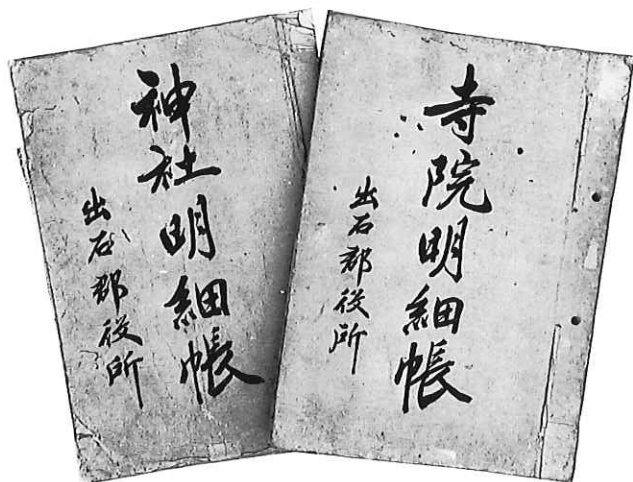 寺院明細帳
出石郡役所
神社明細帳
出石郡役所